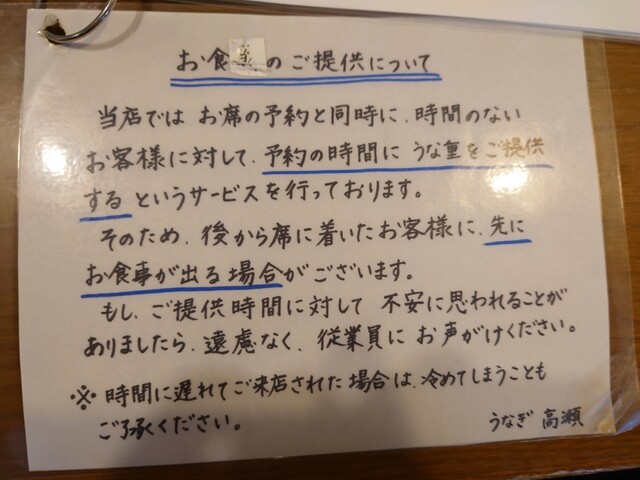 お食事のご提供について
当店では お席の予約と同時に、時間のない
お客様に対して、予約の時間に うな重をご提供
する というサービスを行っております。
そのため、後から席に着いたお客様に、先に
お食事が出る場合がございます。
もし、ご提供時間に対して 不安に思われることが
ありましたら、遠慮なく、従業員に お声がけください。
※ 時間に遅れてご来店された場合は、冷めてしまうことも
ご了承ください。
うなぎ 高瀬